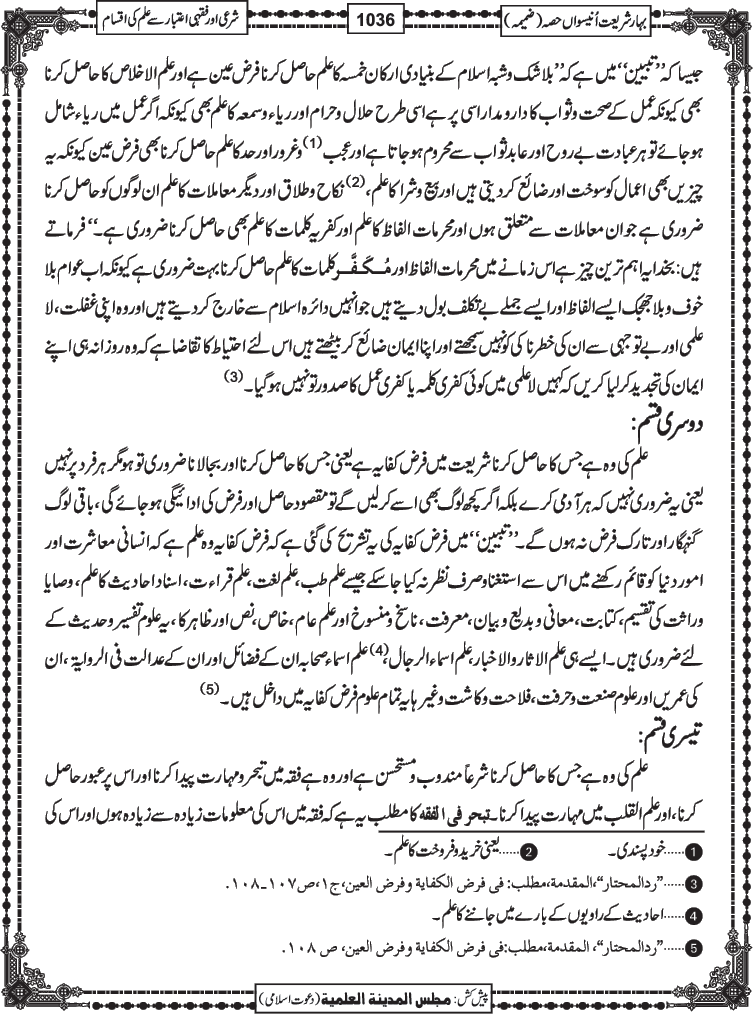 بہارِ شریعت اُنیسواں حصہ (ضمیمہ)
1036
شرعی اور فقہی اعتبار سے علم کی اقسام
جیسا کہ ”تبیین“ میں ہے کہ ”بلا شک و شبہ اسلام کے بنیادی ارکان خمسہ کا علم حاصل کرنا فرض عین ہے اور علم الاخلاص کا حاصل کرنا
بھی کیونکہ عمل کے صحت و ثواب کا دارومدار اسی پر ہے اسی طرح حلال و حرام اور ریاء و سمعہ کا علم بھی کیونکہ اگر عمل میں ریاء شامل
ہو جائے تو ہر عبادت بے روح اور عابد ثواب سے محروم ہو جاتا ہے اور عجب (1) و غرور اور حسد کا علم حاصل کرنا بھی فرض عین کیونکہ یہ
چیزیں بھی اعمال کو سوخت اور ضائع کر دیتی ہیں اور بیع و شرا کا علم، (2) نکاح و طلاق اور دیگر معاملات کا علم ان لوگوں کو حاصل کرنا
ضروری ہے جو ان معاملات سے متعلق ہوں اور محرمات الفاظ کا علم اور کفریہ کلمات کا علم بھی حاصل کرنا ضروری ہے۔“ فرماتے
ہیں: بخدا یہ اہم ترین چیز ہے اس زمانے میں محرمات الفاظ اور مُکَفَّر کلمات کا علم حاصل کرنا بہت ضروری ہے کیونکہ اب عوام بلا
خوف و بلا جھجک ایسے الفاظ اور ایسے جملے بے تکلف بول دیتے ہیں جو انہیں دائرہ اسلام سے خارج کر دیتے ہیں اور وہ اپنی غفلت، لا
علمی اور بے توجہی سے ان کی خطرناکی کو نہیں سمجھتے اور اپنا ایمان ضائع کر بیٹھتے ہیں اس لئے احتیاط کا تقاضا ہے کہ وہ روزانہ ہی اپنے
ایمان کی تجدید کر لیا کریں کہ کہیں لا علمی میں کوئی کفری کلمہ یا کفری عمل کا صدور تو نہیں ہو گیا۔ (3)
دوسری قسم:
علم کی وہ ہے جس کا حاصل کرنا شریعت میں فرض کفایہ ہے یعنی جس کا حاصل کرنا اور بجا لانا ضروری تو ہو مگر ہر فرد پر نہیں
یعنی یہ ضروری نہیں کہ ہر آدمی کرے بلکہ اگر کچھ لوگ بھی اسے کر لیں گے تو مقصود حاصل اور فرض کی ادائیگی ہو جائے گی، باقی لوگ
گنہگار اور تارک فرض نہ ہوں گے۔ ”تبیین“ میں فرض کفایہ کی یہ تشریح کی گئی ہے کہ فرض کفایہ وہ علم ہے کہ انسانی معاشرت اور
امور دنیا کو قائم رکھنے میں اس سے استغنا و صرف نظر نہ کیا جا سکے جیسے علم طب، علم لغت، علم قراءت، اسناد احادیث کا علم، وصایا و
وراثت کی تقسیم، کتابت، معانی و بدیع و بیان، معرفت، ناسخ و منسوخ اور علم عام، خاص، نص اور ظاہر کا، یہ علوم تفسیر و حدیث کے
لئے ضروری ہیں۔ ایسے ہی علم الاثار و الاخبار، علم اسماء الرجال، (4) علم اسماء صحابہ ان کے فضائل اور ان کے عدالت فی الروایۃ، ان
کی عمریں اور علوم صنعت و حرفت، فلاحت و کاشت وغیرہا یہ تمام علوم فرض کفایہ میں داخل ہیں۔ (5)
تیسری قسم:
علم کی وہ ہے جس کا حاصل کرنا شرعاً مندوب و مستحسن ہے اور وہ ہے فقہ میں تبحر و مہارت پیدا کرنا اور اس پر عبور حاصل
کرنا، اور علم القلب میں مہارت پیدا کرنا۔ تبحر فی الفقہ کا مطلب یہ ہے کہ فقہ میں اس کی معلومات زیادہ سے زیادہ ہوں اور اس کی
1 ......خود پسندی۔ 2 ......یعنی خرید و فروخت کا علم۔
3 ......”ردالمحتار“، المقدمة، مطلب: فی فرض الکفایة وفرض العین، ج۱، ص۱۰۷۔۱۰۸.
4 ......احادیث کے راویوں کے بارے میں جاننے کا علم۔
5 ......”ردالمحتار“، المقدمة، مطلب: فی فرض الکفایة وفرض العین، ص ۱۰۸.
پیش کش: مجلس المدینة العلمیة (دعوت اسلامی)